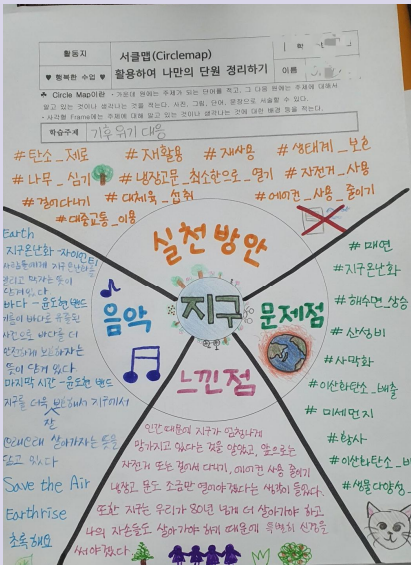 활동지
♥ 행복한 수업 ♥
서클맵(Circlemap)
활용하여 나만의 단원 정리하기
이름
☘ Circle Map이란 - 가운데 원에는 주제가 되는 단어를 적고, 그 다음 원에는 주제에 대해서
알고 있는 것이나 생각나는 것을 적는다. 사진, 그림, 단어, 문장으로 서술할 수 있다.
- 사각형 Frame에는 주제에 대해 알고 있는 것이나 생각나는 것에 대한 배경 등을 적는다.
학습주제
기후 위기 대응
# 탄소_제로 # 재활용 # 재사용 # 생태계_보호
# 나무_심기 # 냉장고문_최소한으로_열기 # 자전거_사용
# 걸어다니기 # 대체육_섭취 # 에어컨_사용_줄이기
# 대중교통_이용
실천방안
지구
음악
문제점
느낀점
Earth
지구온난화
담겨있다
바다 - 윤도현 밴드
바다를 더
뜻이 담겨 있다
마지막 시간 - 윤도현 밴드
지구를 더욱 보존해서 지구에서
잘
살아가자는 뜻을
담고 있다
Save the Air
Earthrise
초록해요
# 매연
# 지구온난화
# 해수면_상승
# 산성비
# 사막화
# 이산화탄소_배출
# 미세먼지
# 황사
# 이산화탄소_
# 생물다양성_
인간 때문에 지구가 엄청나게
망가지고 있다는 것을 알았고, 앞으로는
자전거 또는 걸어 다니기, 에어컨 사용 줄이기
냉장고 문도 조금만 열어야겠다는 생각이 들었다.
또한 지구는 우리가 80년 넘게 더 살아가야 하고
나의 자손들도 살아가야 하기 때문에 특별히 신경을
써야겠다.